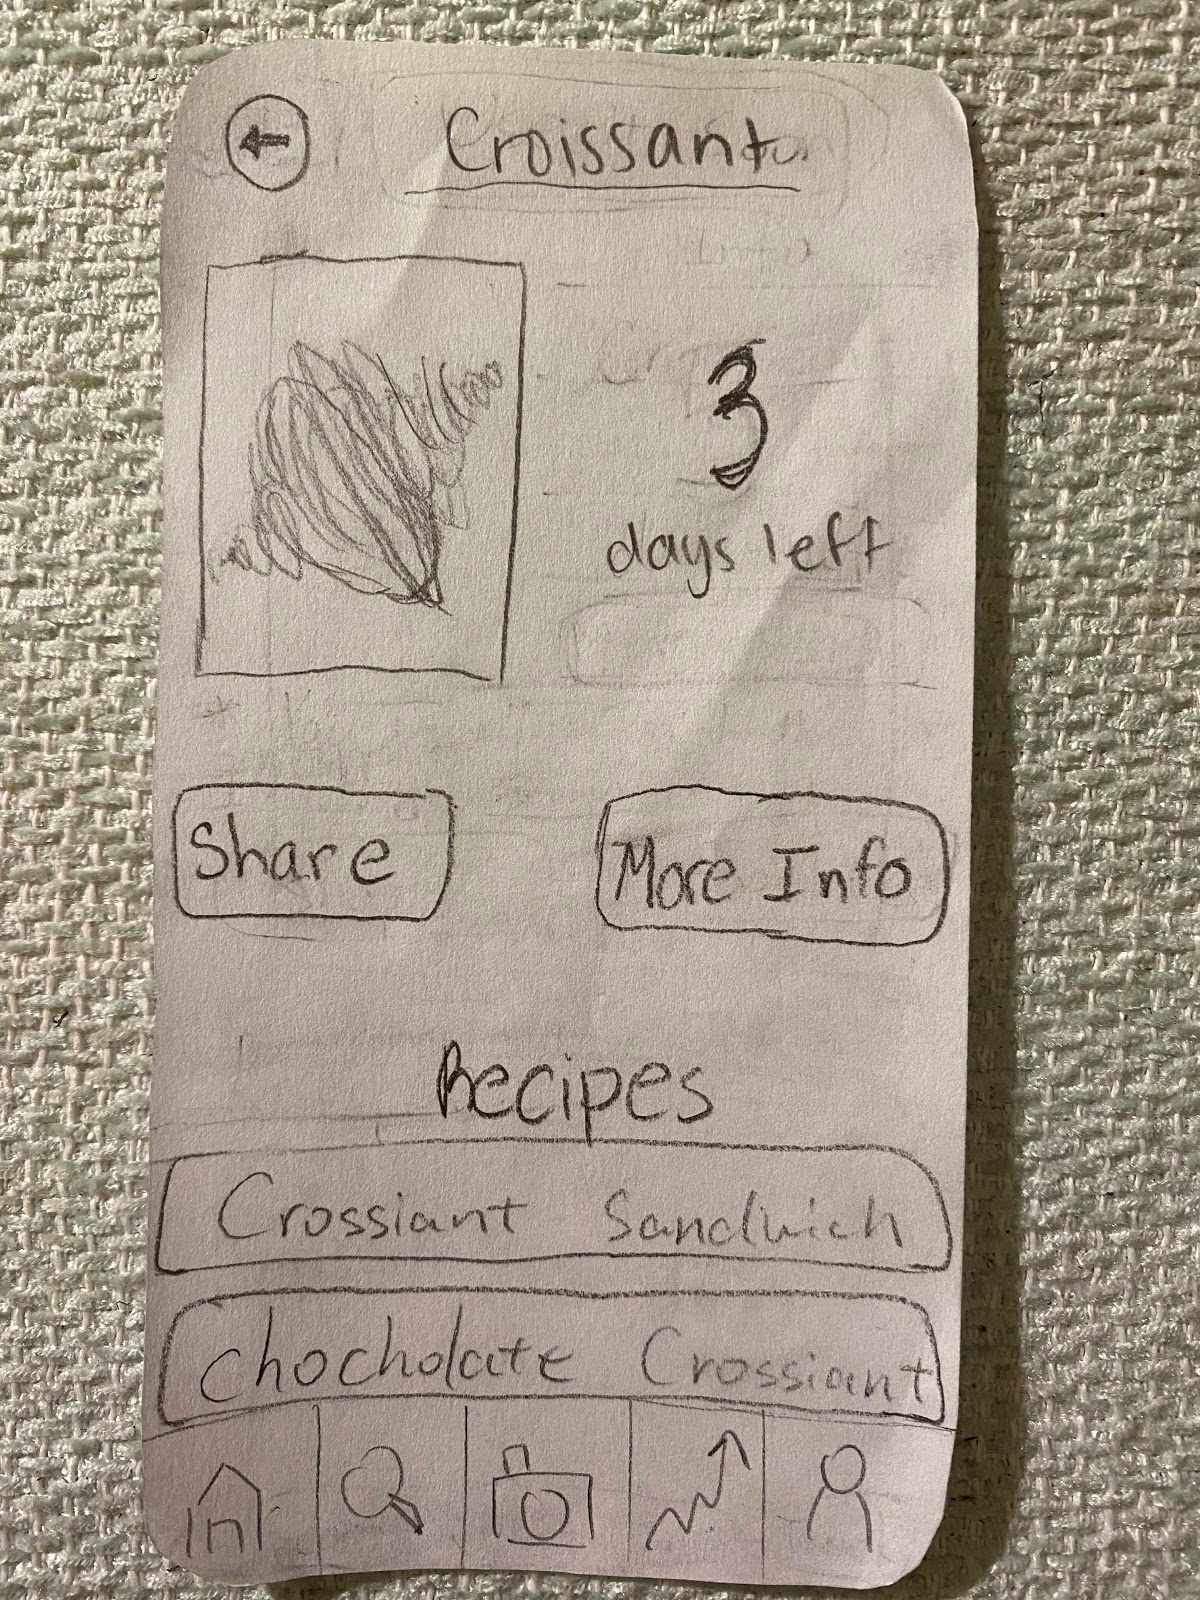 Croissant
3
days left
Share
More Info
Recipes
Crossiant Sandwich
Chocholate Crossiant